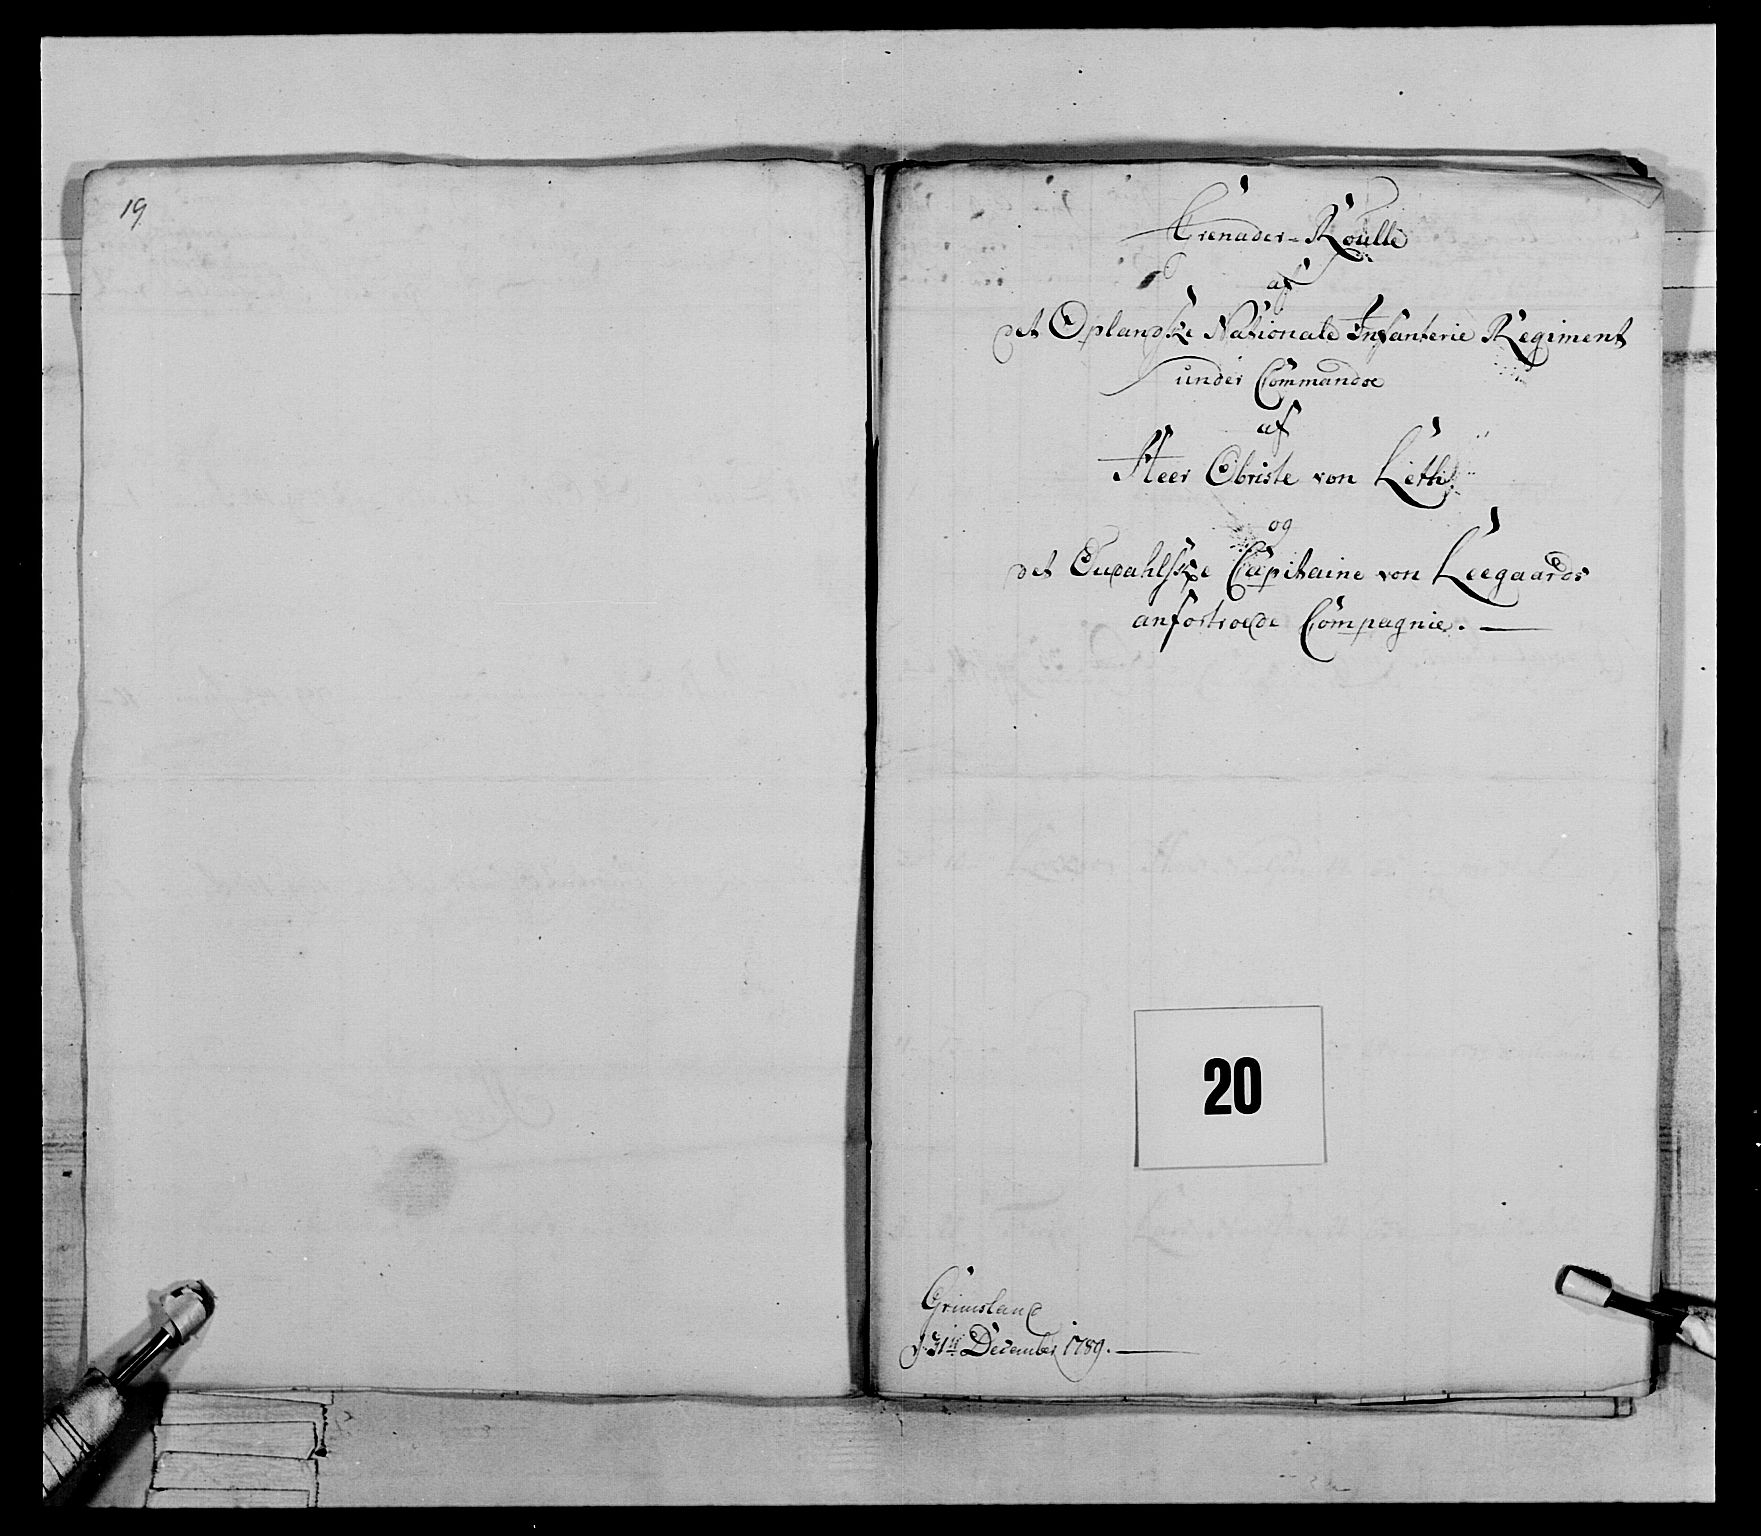 19
Grenadier-Roulle
af
det Oplandske Nationale Infanterie Regiment
under Commando
af
Herr Obriste von Leth
og
det Capitaine von Leegaards
anfortroede Compagnie.
20
Grimsland
d. 31te December 1789.